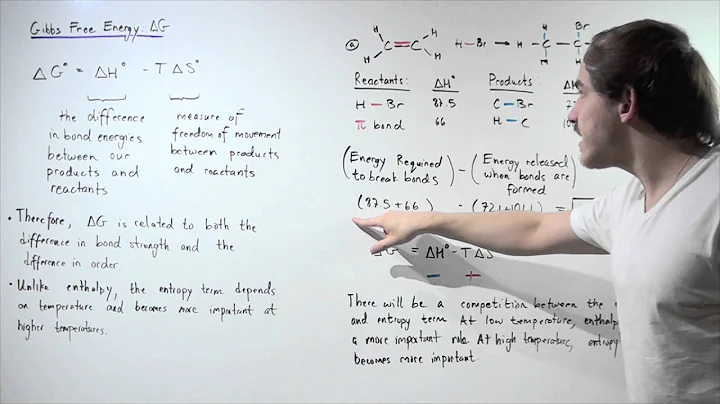 Gibbs Free Energy: ΔG
ΔG° = ΔH° - TΔS°
the difference
in bond energies
between our
products and
reactants
measure of
freedom of movement
between products
and reactants
• Therefore, ΔG is related to both the
difference in bond strength and the
difference in order
• Unlike enthalpy, the entropy term depends
on temperature and becomes more important at
higher temperatures.
a H H C=C H H H—Br → H Br H—C—C H
Reactants: ΔH°
H—Br 87.5
π bond 66
Products:
C—Br
H—C
(Energy Required to break bonds) - (Energy released when bonds are formed)
(87.5+66) - (72.1+101.1) =
ΔG° = ΔH° - TΔS°
- +
There will be a competition between the
and entropy term. At low temperature,
a more important role. At high temperature,
becomes more important.